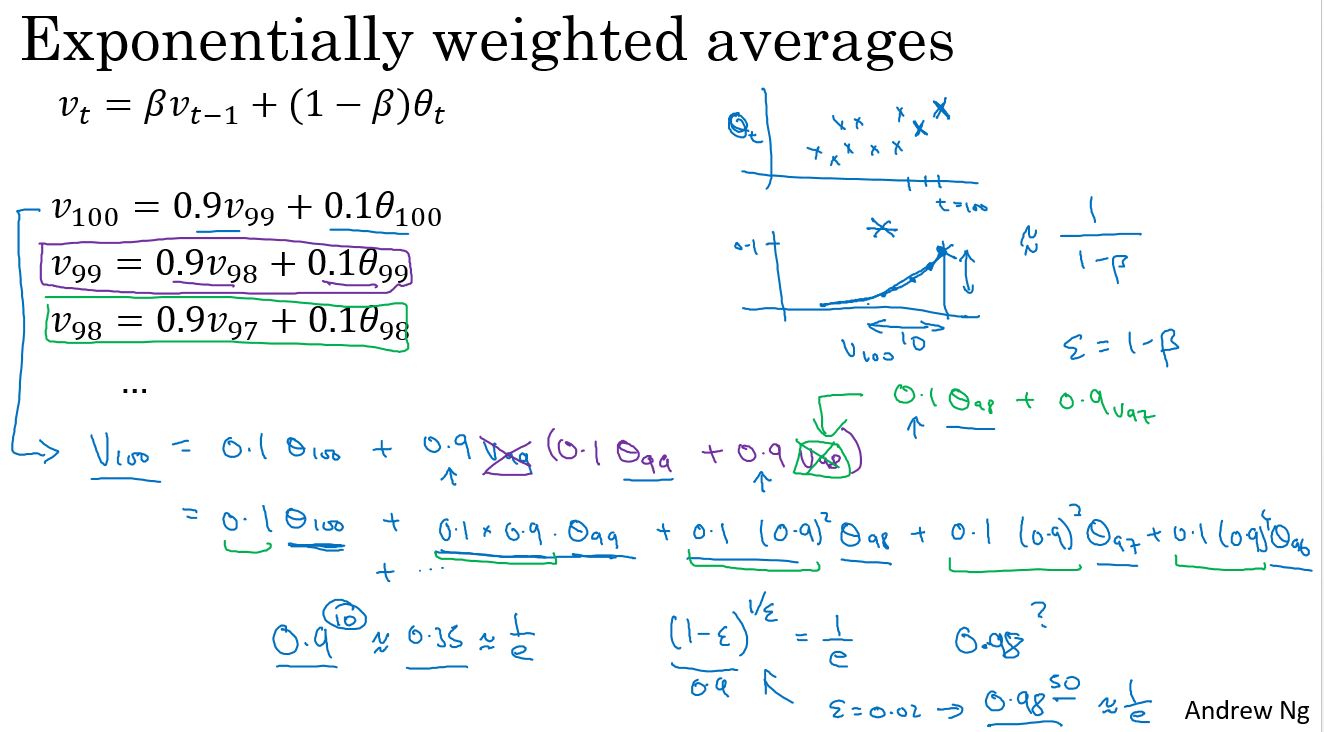 Exponentially weighted averages
v_t = βv_{t−1} + (1 − β)θ_t
θ_t
t=100
v_{100} = 0.9v_{99} + 0.1θ_{100}
v_{99} = 0.9v_{98} + 0.1θ_{99}
v_{98} = 0.9v_{97} + 0.1θ_{98}
...
0.1
10
V_{100}
≈ 1/(1-β)
ε = 1-β
0.1 θ_{98} + 0.9 v_{97}
V_{100} = 0.1 θ_{100} + 0.9 v_{99} (0.1 θ_{99} + 0.9 v_{98})
= 0.1 θ_{100} + 0.1 × 0.9 · θ_{99} + 0.1 (0.9)^2 θ_{98} + 0.1 (0.9)^3 θ_{97} + 0.1 (0.9)^4 θ_{96}
+ ...
0.9^{10} ≈ 0.35 ≈ 1/e
(1-ε)^{1/ε} = 1/e
0.9
0.98^?
ε = 0.02 → 0.98^{50} ≈ 1/e
Andrew Ng